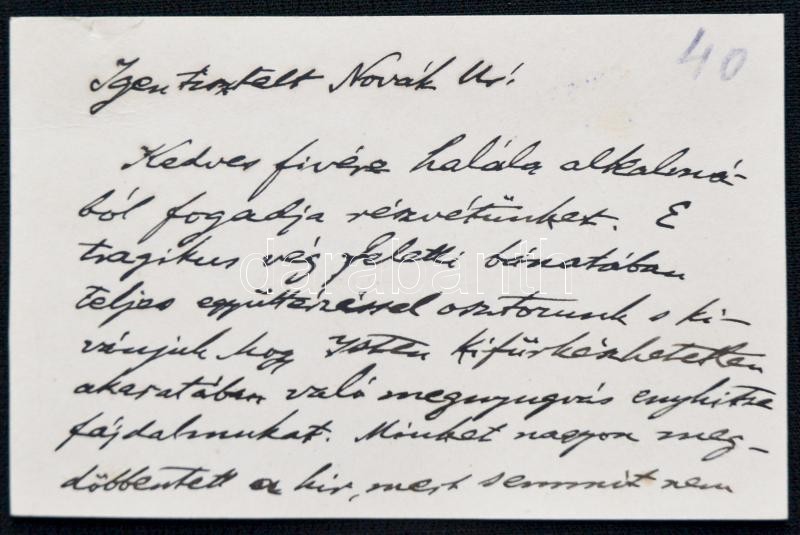 40
Igen tisztelt Novák Úr!
Kedves fivére halála alkalmá-
ból fogadja részvétünket. E
tragikus vég feletti bánatában
teljes együttérzéssel osztozunk s ki-
vánjuk hogy Isten kifürkészhetetlen
akaratában való megnyugvás enyhitse
fájdalmukat. Minket nagyon meg-
döbbentett a hir, mert semmit nem
darabanth